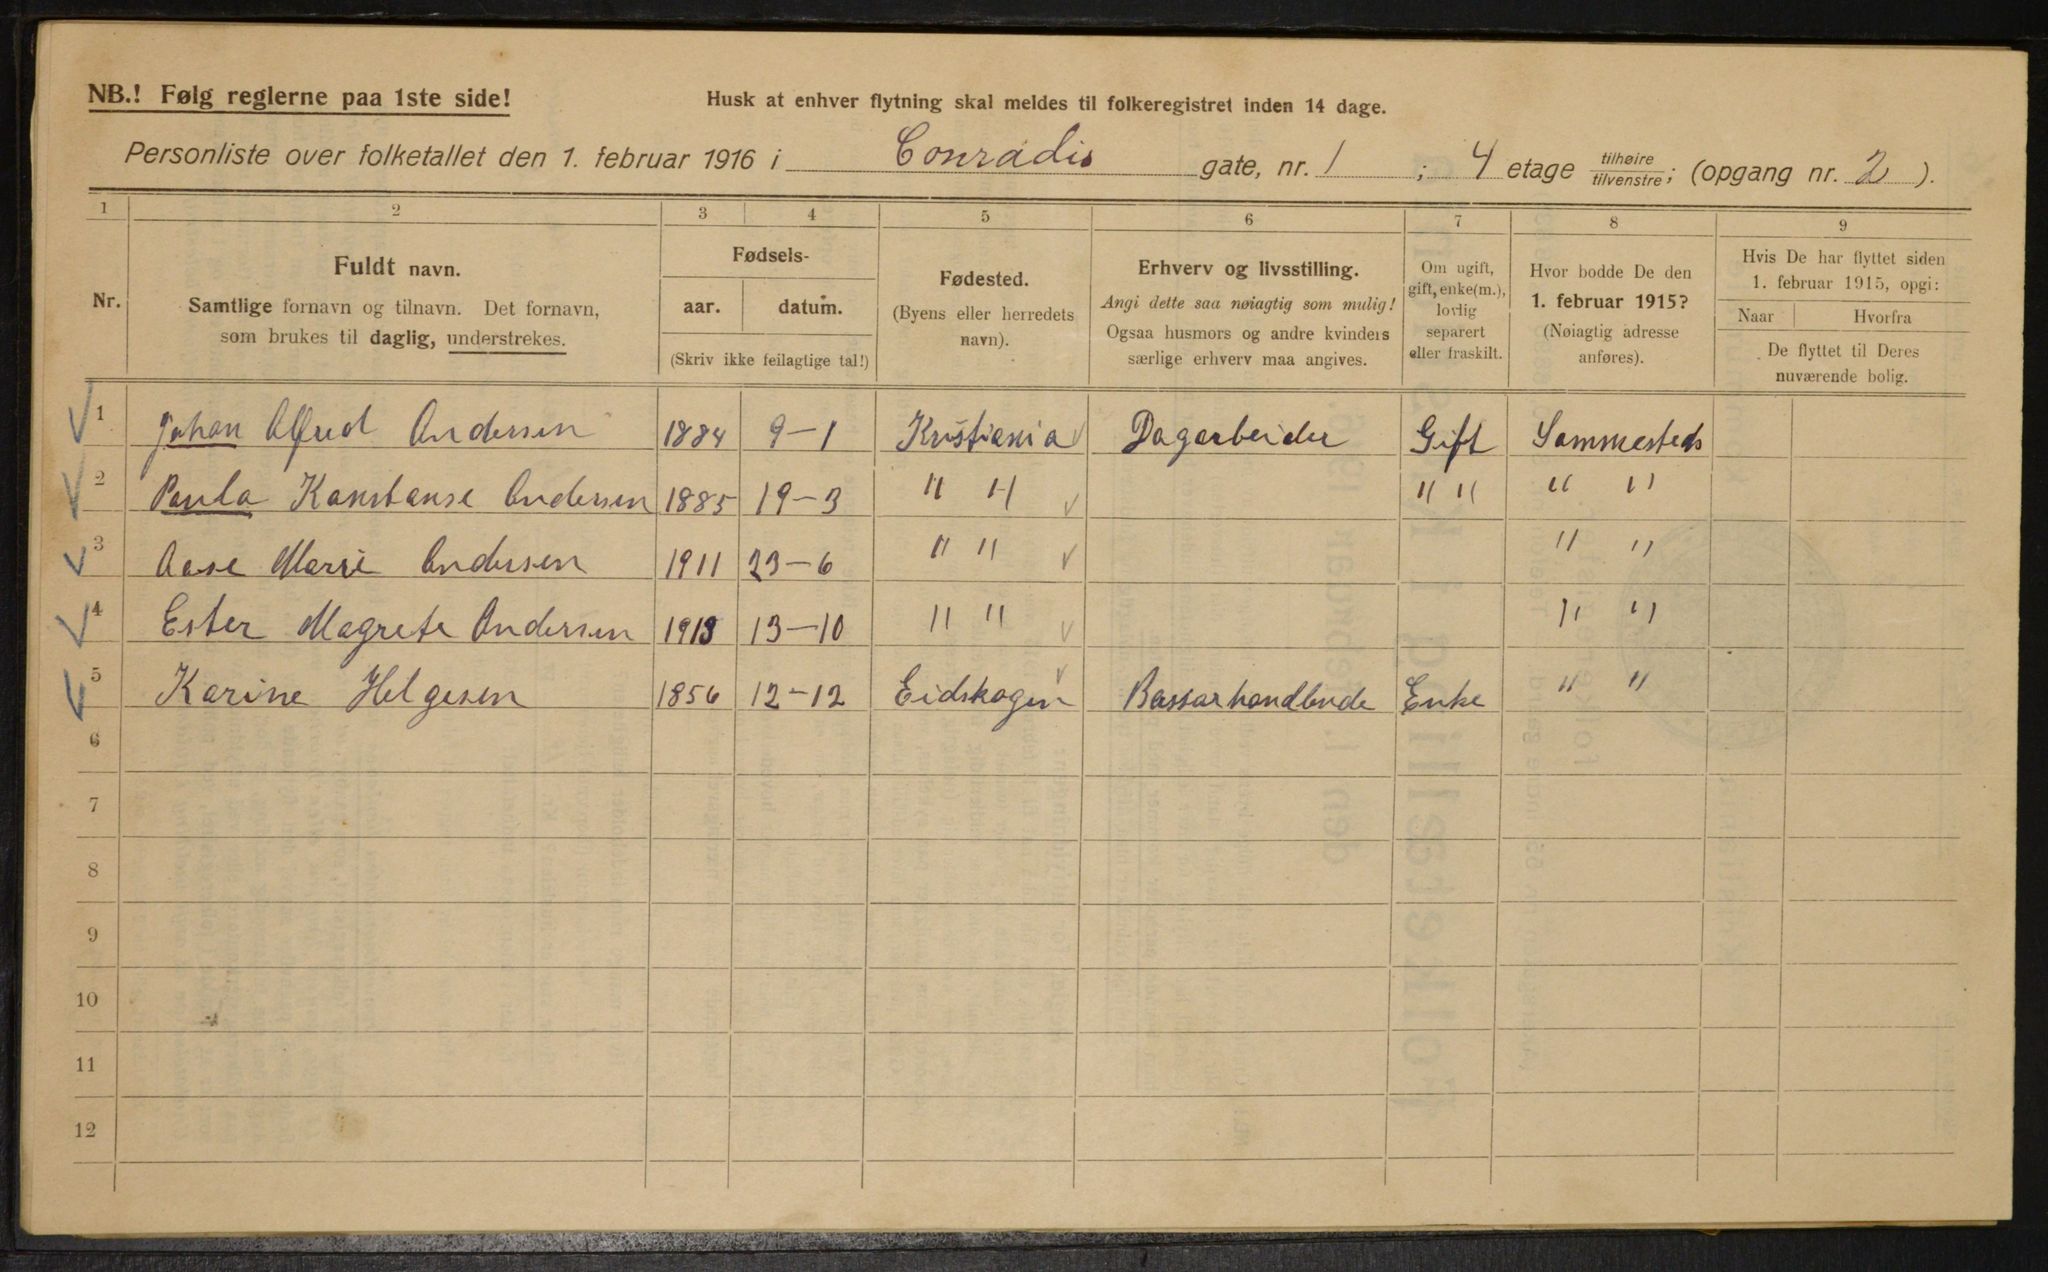 NB.! Følg reglerne paa 1ste side!
Husk at enhver flytning skal meldes til folkeregistret inden 14 dage.
Personliste over folketallet den 1. februar 1916 i Conradis gate, nr. 1 ; 4 etage tilhøire/tilvenstre; (opgang nr. 2 ).
1 2 3 4 5 6 7 8 9
Nr.
Fuldt navn.
Samtlige fornavn og tilnavn. Det fornavn,
som brukes til daglig, understrekes.
Fødsels-
aar. datum.
(Skriv ikke feilagtige tal!)
Fødested.
(Byens eller herredets
navn).
Erhverv og livsstilling.
Angi dette saa nøiagtig som mulig!
Ogsaa husmors og andre kvinders
særlige erhverv maa angives.
Om ugift,
gift, enke(m.),
lovlig
separert
eller fraskilt.
Hvor bodde De den
1. februar 1915?
(Nøiagtig adresse
anføres).
Hvis De har flyttet siden
1. februar 1915, opgi:
Naar Hvorfra
De flyttet til Deres
nuværende bolig.
1 Johan Alfred Andersen 1884 9-1 Kristiania Dagarbeider Gift Sammesteds
2 Paula Konstanse Andersen 1885 19-3 " " " " " "
3 Aase Marie Andersen 1911 23-6 " " " "
4 Ester Magrete Andersen 1913 13-10 " " " "
5 Karine Helgesen 1856 12-12 Eidskogen Bassarhandlende Enke " "
6
7
8
9
10
11
12